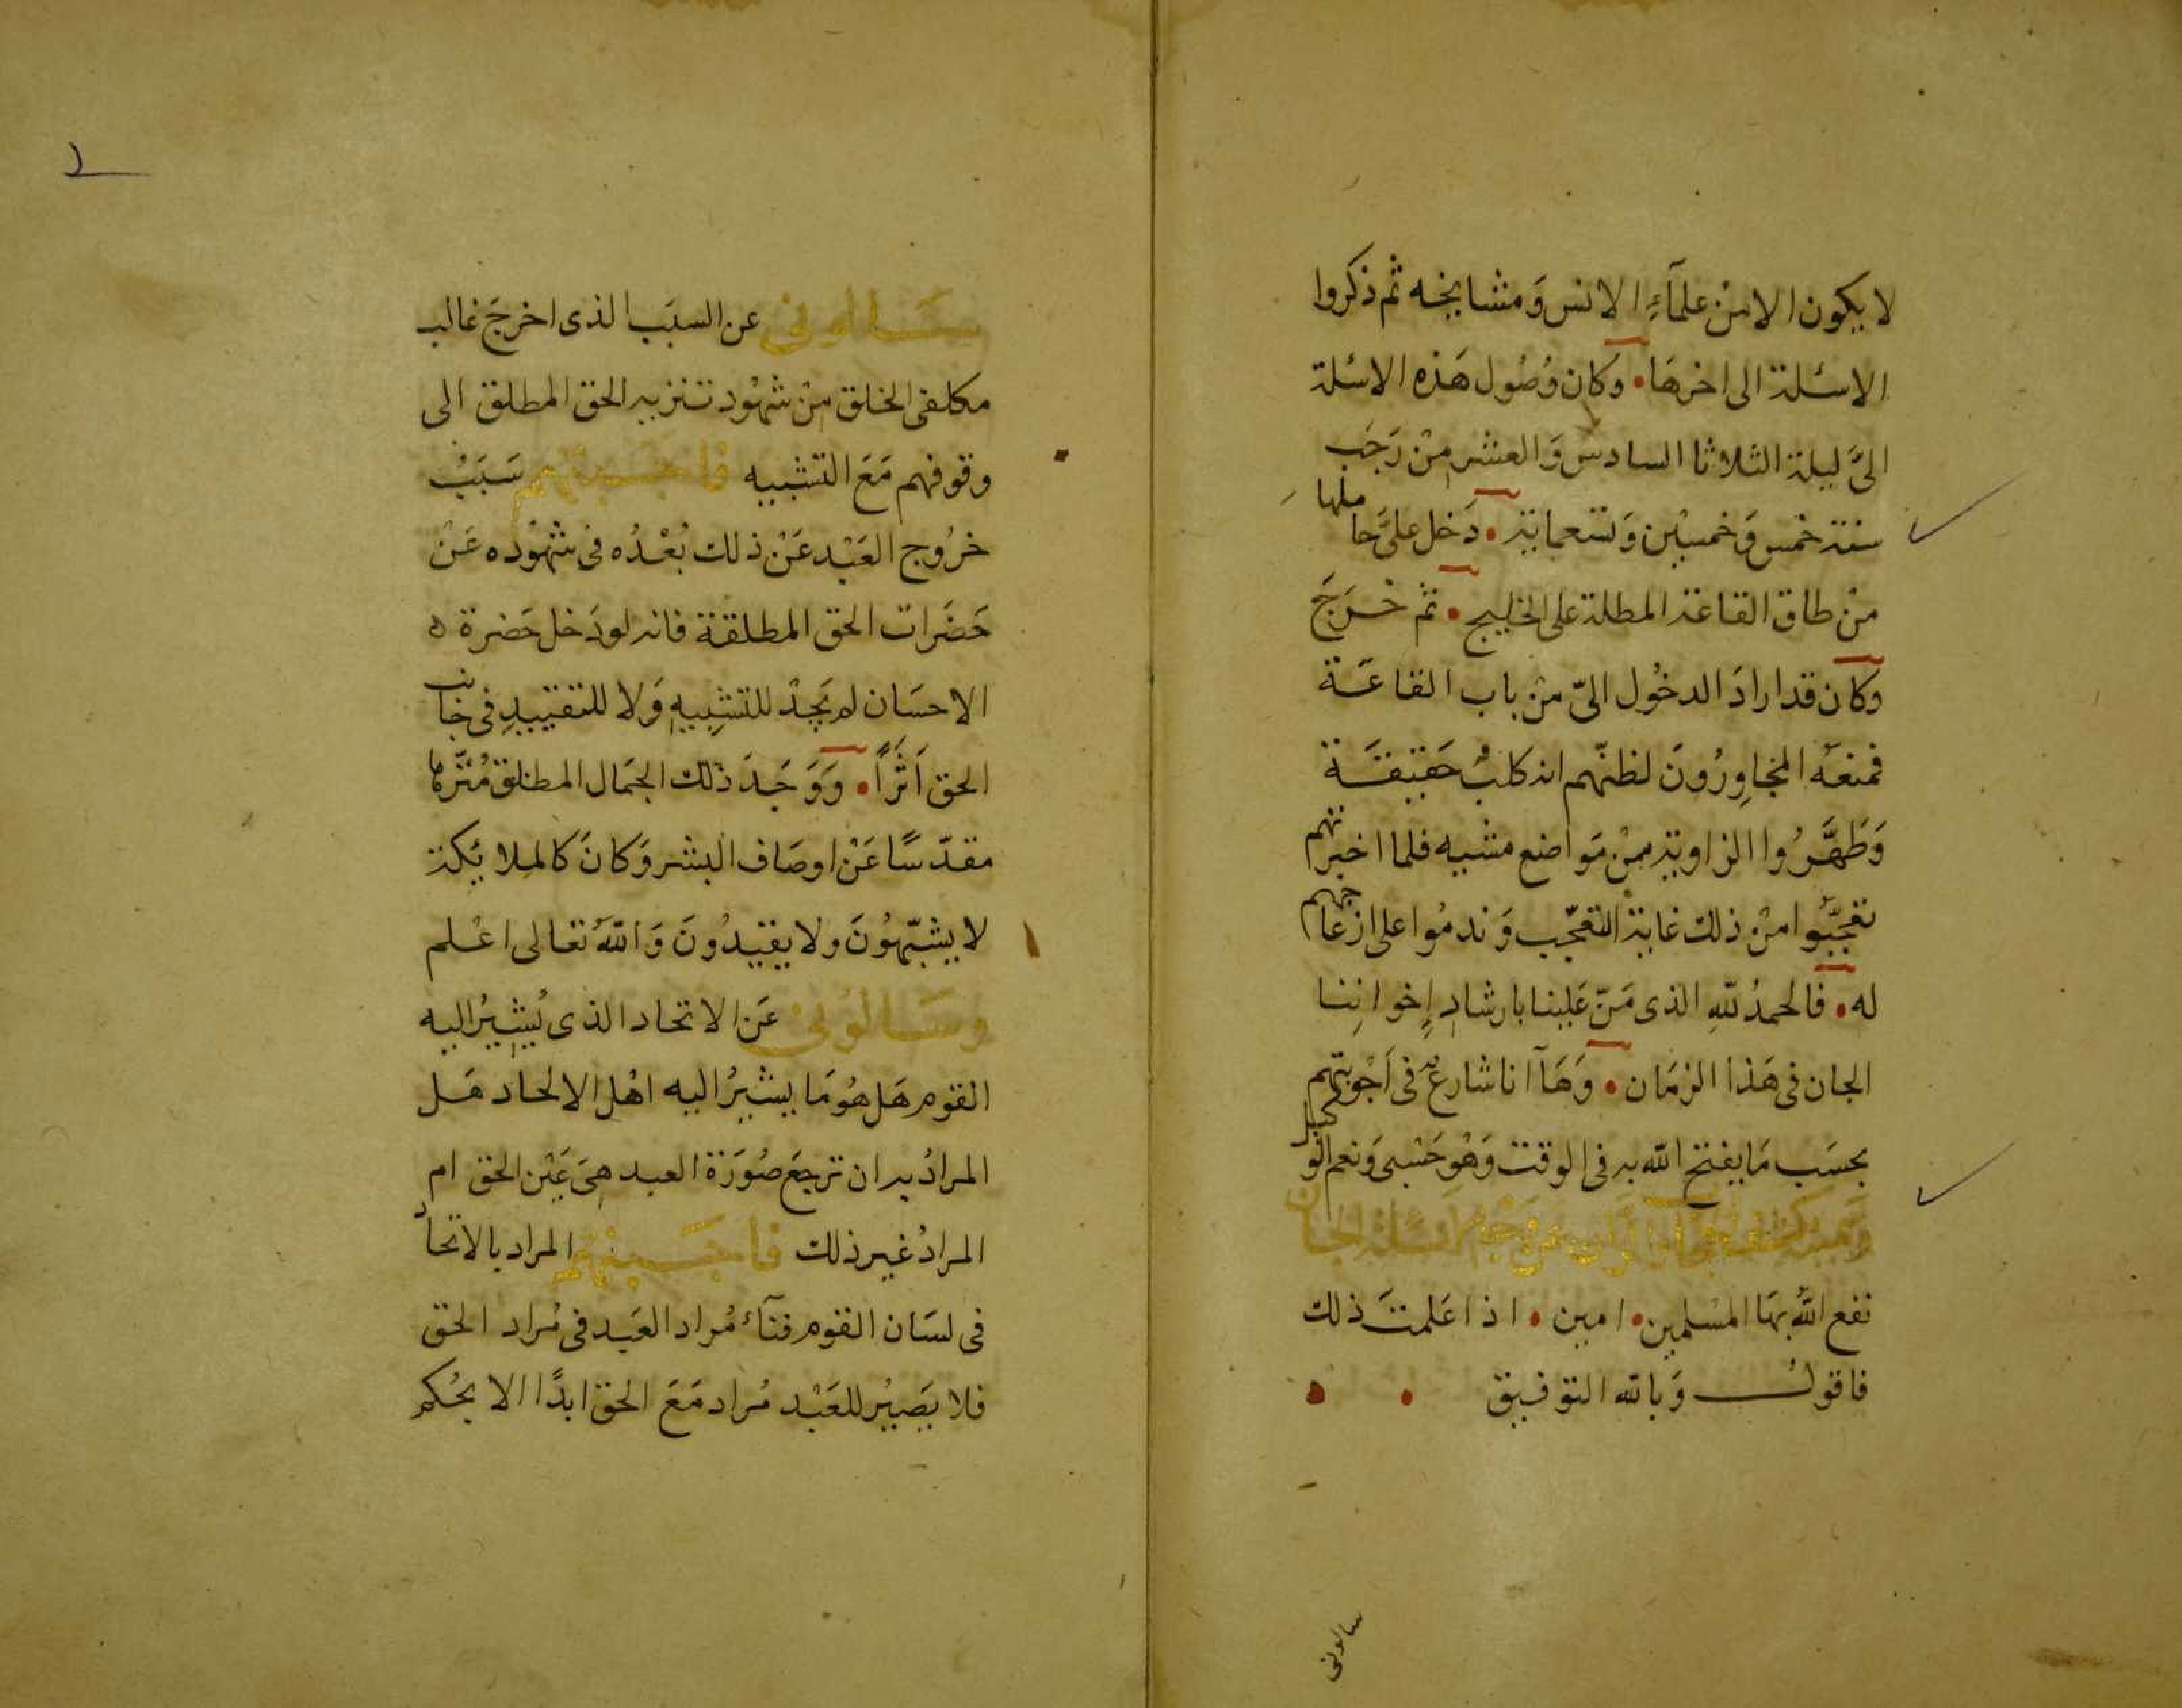 لا يكون الا من علمآءِ الانس وَمشايخه ثم ذكروا
الاسئلة الى اخرهَا. وكان وُصُول هَذه الاسئلة
الىَّ ليلة الثلاثا السادس وَالعشر من رَجَب
سنة خمس وَخمسين وَتسعماية. دَخل علىَّ حاملها
من طاق القاعة المطلة على الخليج. ثم خرَجَ
وَكان قد ارادَ الدخُول الىّ من باب القاعَة
فمنعَه المجاوِرُونَ لظنّهم انه كلبٌ حَقيقَة
وَطَهَّرُوا الزاوية من مَواضع مشيه فلما اخبرتهم
تعجّبُوا من ذلك غاية التعجّب وَندمُوا على ازعاجهم
له. فالحمدُ للّهِ الذى مَنّ عَلينا بارشادِ إخوانِنا
الجان فى هَذا الزمَان. وَهَآ انا شارعٌ فى اَجْوبتهم
بحسَب مَا يفتح اللّه به فى الوقت وَهْوَ حَسْبى وَنعم الوكيل
وَسميته كشف الحجاب والران عن وَجْه اسئلة الجان
نفع اللّهُ بهَا المسلمين. امين. اذا عَلمتَ ذلك
فاقولُ وَبالله التوفيق
سالونى
٢
سَالونى عن السبَب الذى اخرجَ غالب
مكلفى الخلق من شهُود تنزيه الحق المطلق الى
وقوفهم مَعَ التشبيه فاجَبتهم سَبَبُ
خرُوج العَبْد عَنْ ذلك بُعْدُه فى شهُوده عَنْ
حَضَرات الحق المطلقة فانه لو دَخل حَضرة
الاحسَان لم يَجدْ للتشبِيهِ وَلا للتقييدِ فى جَانب
الحق اَثَراً. وَوَجَدَ ذلك الجمَال المطلق مُنَزّها
مقدّسًا عَنْ اوصَاف البشر وَكانَ كالملايكة
لا يشبّهُونَ ولا يقيّدُونَ وَاللّهُ تعَالى اعْلم
وسَالوُنى عَن الاتحاد الذى يُشيرُ اليه
القوم هَل هُوَ مَا يشيرُ اليه اهْل الالحاد هَل
المرادُ به ان ترجعَ صُورَة العبد هىَ عَيْن الحق ام
المرادُ غير ذلك فاجَبْتهُم المراد بالاتحاد
فى لسَان القوم فنآء مُراد العَبد فى مُراد الحق
فلا يَصيْر للعَبْد مُراد مَعَ الحق ابدًا الا بحُكم